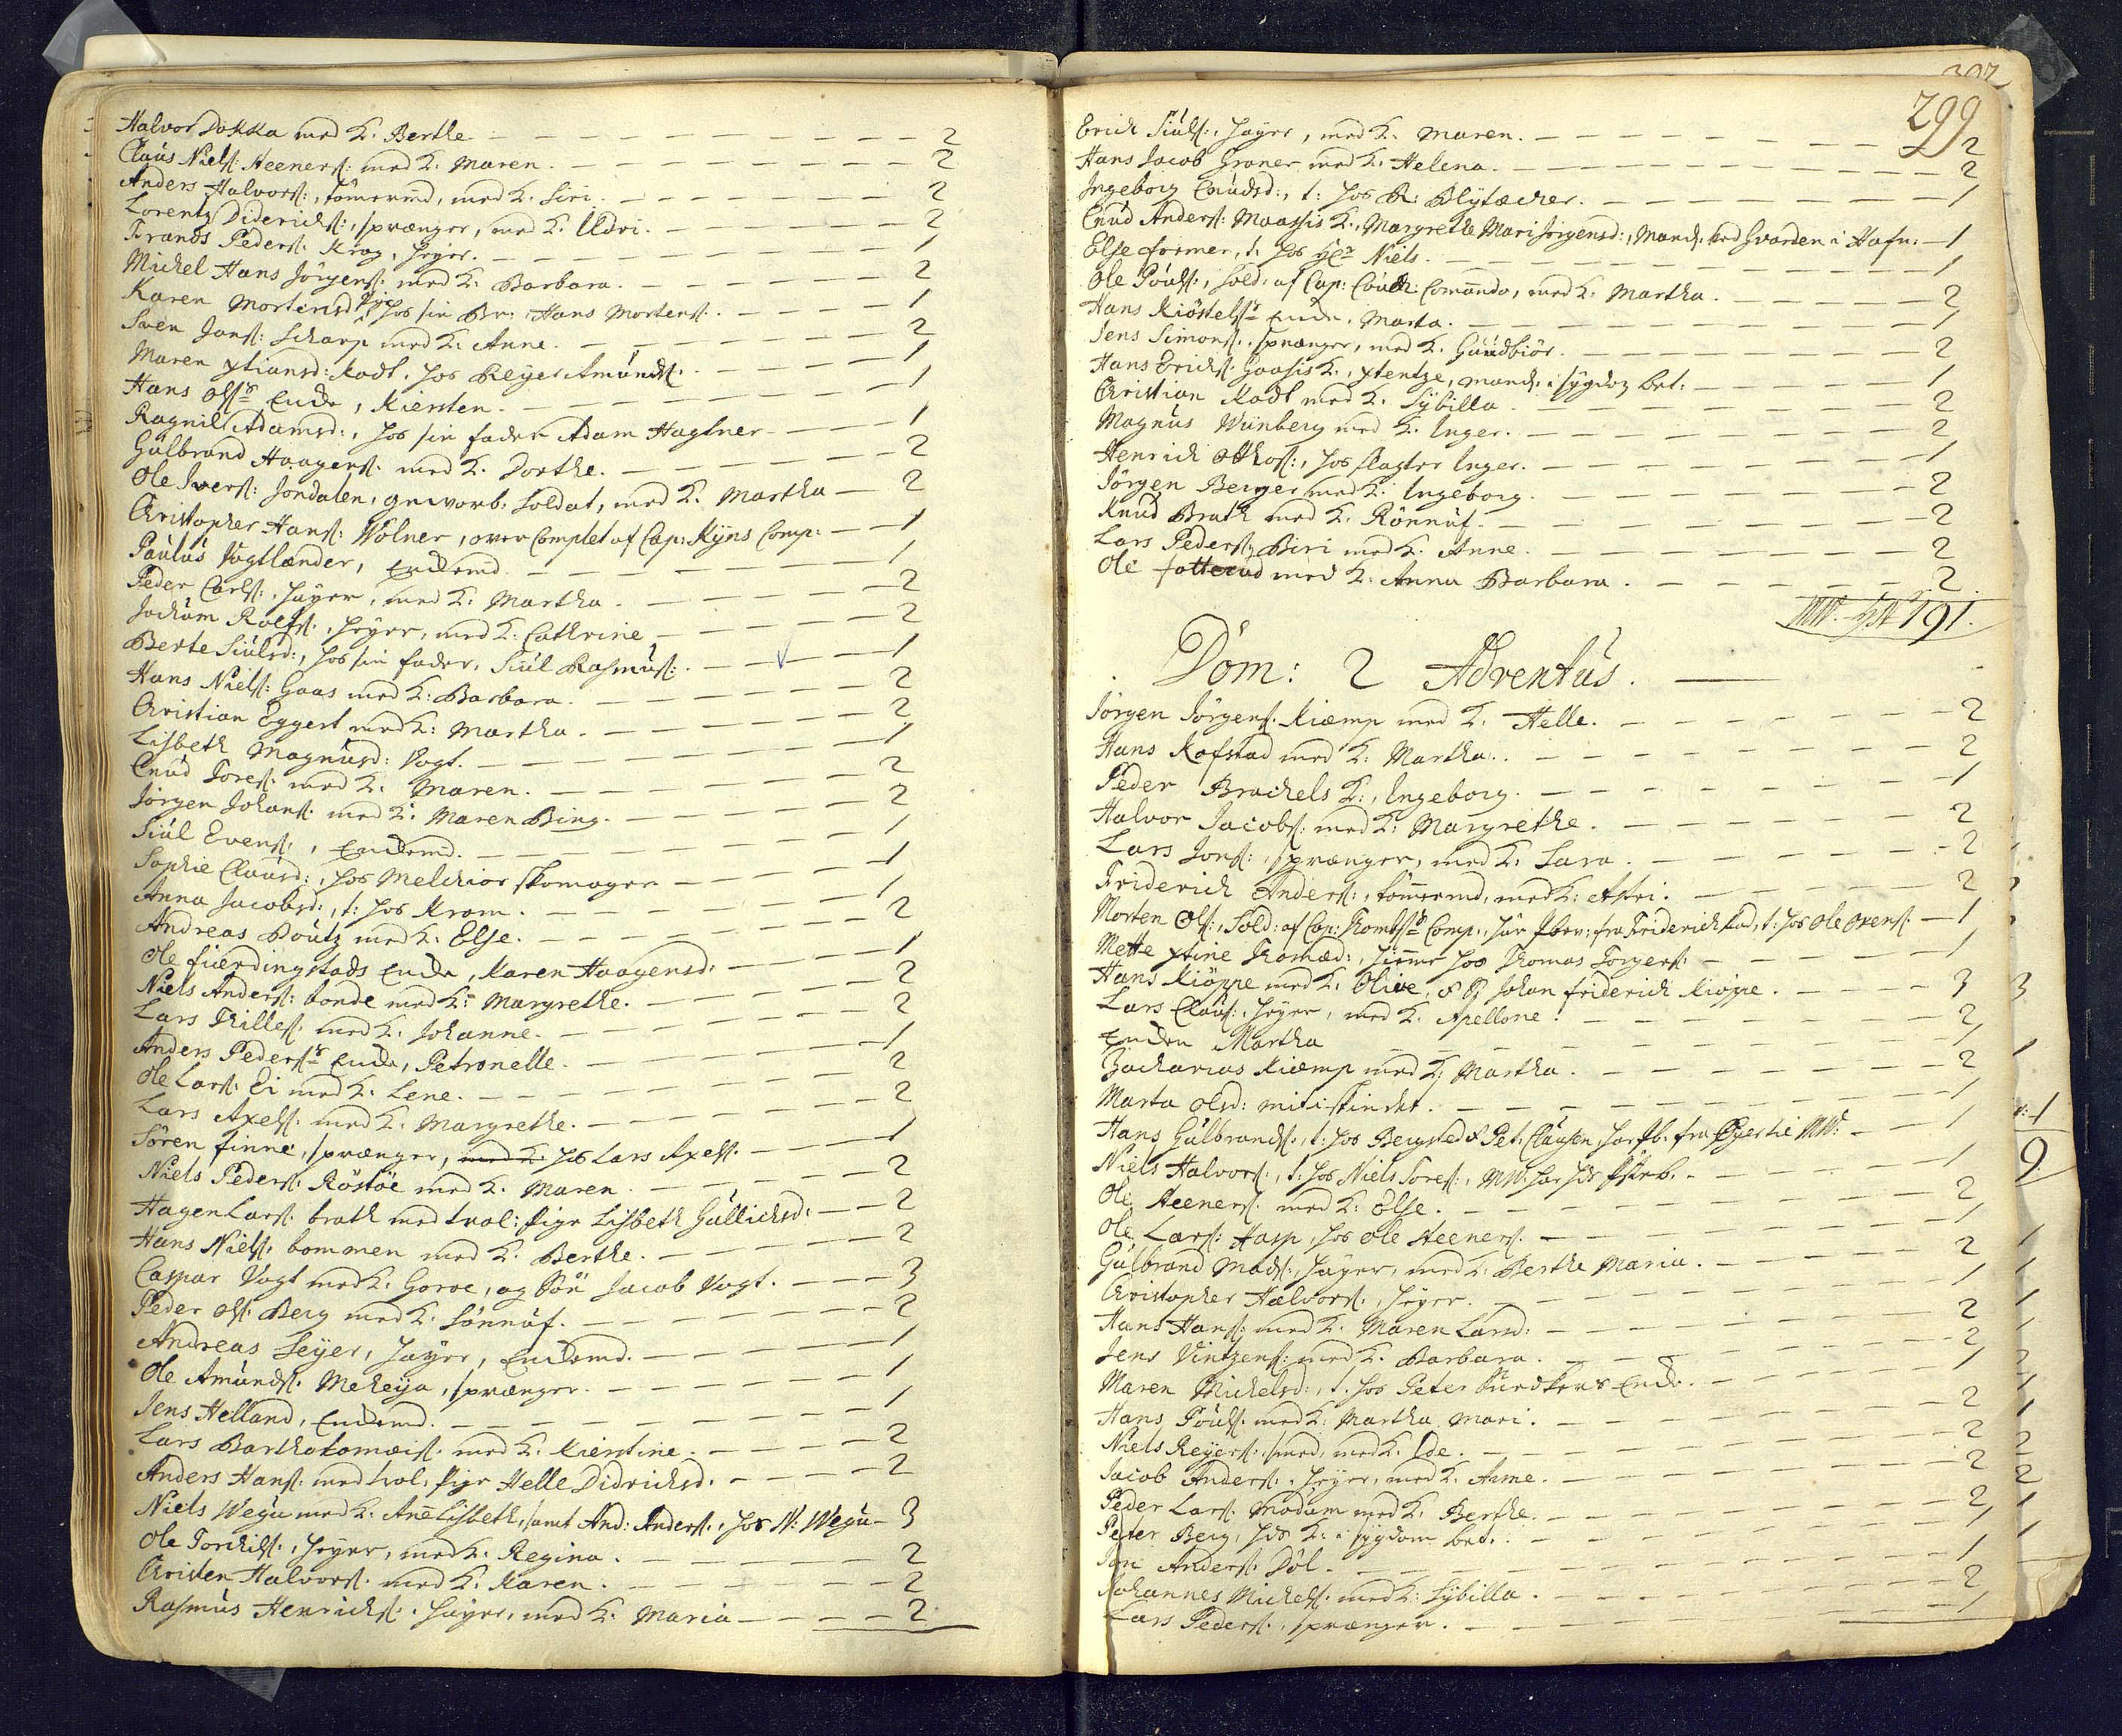 Halvor Dokka med K. Berthe - 2
Claus Niels: Steeners: med K. Maren. - 2
Anders Halvors:, tömermd, med K. Siri. - 2
Lorentz Diderichs:, sprænger, med K. Uldri. - 2
Frands Peders. Krag, Hyer. - 1
Michel Hans Jörgens: med K. Barbara. - 2
Karen Mortensd pige, hos sin Br: Hans Mortens:. - 1
Sven Jons: Scharp med K. Anne. - 2
Maren xtiansd: Kadt. hos Reyer Amunds. - 1
Hans Ols:s Encke, Kiersten. - 1
Ragnil Adamsd:, hos sin fader Adam Hagtner - 1
Gulbrand Haagens: med K. Dorthe. - 2
Ole Ivers: Jondalen, gevorb. Soldat, med K. Martha - 2
Christopher Hans: Wolner, over Complet af Cap: Kyns Comp: - 1
Paulus Vogtlænder, Enckemd. - 1
Peder Carls:. Häyer, med K. Martha. - 2
Jochum Rolfs:. Heyer, med K: Cathrine - 2
Berte Siulsd:, hos sin fader, Siul Rasmus: - 1
Hans Niels: Gaas med K: Barbara. - 2
Christian Eggert med K: Martha. - 2
Lisbeth Magnusd: Vogt. - 1
Cnud Tores: med K. Maren. - 2
Jörgen Johans: med K. Maren Bing. - 2
Siul Evens:, Enckemd. - 1
Sophie Clausd:, hos Melchior skomager - 1
Anna Jacobsd:, t: hos Kram. - 1
Andreas Boutz med K. Else. - 2
Ole fierdingstads Encke, Karen Haagensd: - 1
Niels Anders: bonde med K: Margrethe. - 2
Lars Thilles: med K. Johanne. - 2
Anders Peders:s Encke, Petronelle. - 1
Ole Lars: Ei med K. Lene. - 2
Lars Axels: med K. Margrethe. - 2
Sören finne, sprænger, med K. hos Lars Axels. - 1
Niels Peders. Röstöe med K. Maren. - 2
Hagen Lars: brath med trol: pige Lisbeth Gullichsd: - 2
Hans Niels: bommen med K. Berthe. - 2
Caspar Vogt med K. Goroe, og Sön Jacob Vogt. - 3
Peder Ols: Berg med K. Sönnuf. - 2
Andreas Seyer, Häyer, Enckemd. - 1
Ole Amunds. Meheya, sprænger. - 1
Jens Helland, Enckemd. - 1
Lars Bartholomæis: med K. Kierstine. - 2
Anders Hans: med trol. pige Helle Didrichsd. - 2
Niels Wegu med K. Ane Lisbeth, samt And: Anders:, hos N: Wegu - 3
Ole Torchils:. Heyer, med K. Regina. - 2
Christen Halvors: med K. Karen. - 2
Rasmus Henrichs:. Häyer, med K. Maria - 2
299
Erich Siuls:. Häyer, med K. Maren. - 2
Hans Jacob Graner med K. Helena. - 2
Ingeborg Cnudsd:, t: hos R: Blytæcher. - 1
Cnud Anders: Maassis K., Margrethe Mari Jörgensd:, Mand. ved Gvarden i Hafn: - 1
Else former, t. hos Hr Niels. - 1
Ole Pouls:, Sold. af Cap: Comando, med K. Martha. - 2
Hans Kiöstels:s Encke, Marta. - 1
Jens Simons:. sprænger, med K. Gundbiör. - 2
Hans Erichs: Gaasis K., xtentze, mand. i sygdom bet: - 1
Christian Kadt med K. Sybilla. - 2
Magnus Wiinberg med K. Inger. - 2
Henrich Othos:, hos slagter Inger. - 1
Jörgen Berger med K. Ingeborg. - 2
Knud Brath med K. Rönnuf. - 2
Lars Peders: Biri med K. Anne. - 2
Ole fotterud med K: Anna Barbara. - 2
191.
Dom: 2 Adventus.
Jörgen Jörgens. Kiæmp med K. Helle. - 2
Hans Kafstad med K: Martha. - 2
Peder Brachels K:, Ingeborg. - 1
Halvor Jacobs: med K: Margrethe. - 2
Lars Jons:, sprænger, med K. Sara. - 2
Friderich Anders:, tömermd, med K: Astri. - 2
Morten Ols:, Sold: af Cap: Comp:, fra Friderichstad, t: hos Ole Ovens: - 1
Mette xtine Thomæd:, hieme hos Thomas Torgers: - 1
Hans Kiöppe med K. Olive, & S. Johan friderich Kiöppe. - 3 3
Lars Claus:. Heyer, med K. Apellone. - 2
Encken Martha - 1
Zacharias Kiæmp med K: Martha. - 2
Marta Olsd: mitisskindet. - 1
Hans Gulbrands:, t: hos Bergsted & Pet: Clausen, har sb. fra MW: - 1
Niels Halvors:, t: hos Niels Tores: - 1
Ole Steeners: med K: Else. - 2
Ole Lars: Hasp, hos Ole Steeners: - 1
Gulbrand Mads:. Häyer, med K: Berthe Maria. - 2
Christopher Halvors:. Heyer. - 1
Hans Hans: med K. Maren Larsd: - 2
Jens Vintzens: med K. Barbara. - 2
Maren Michelsd:, t. hos Peter bundkers Encke. - 1
Hans Pouls: med K: Martha Mari. - 2
Niels Reyers: smed, med K. Ide. - 2
Jacob Anders:. Heyer, med K. Anne. - 2
Peder Lars: Modum med K. Berthe. - 2
Peter Berg, hds K: i sygdom bet: - 1
Jon Anders: Döl - 1
Johannes Michels: med K: Sybilla. - 2
Lars Peders:, sprænger. - 1